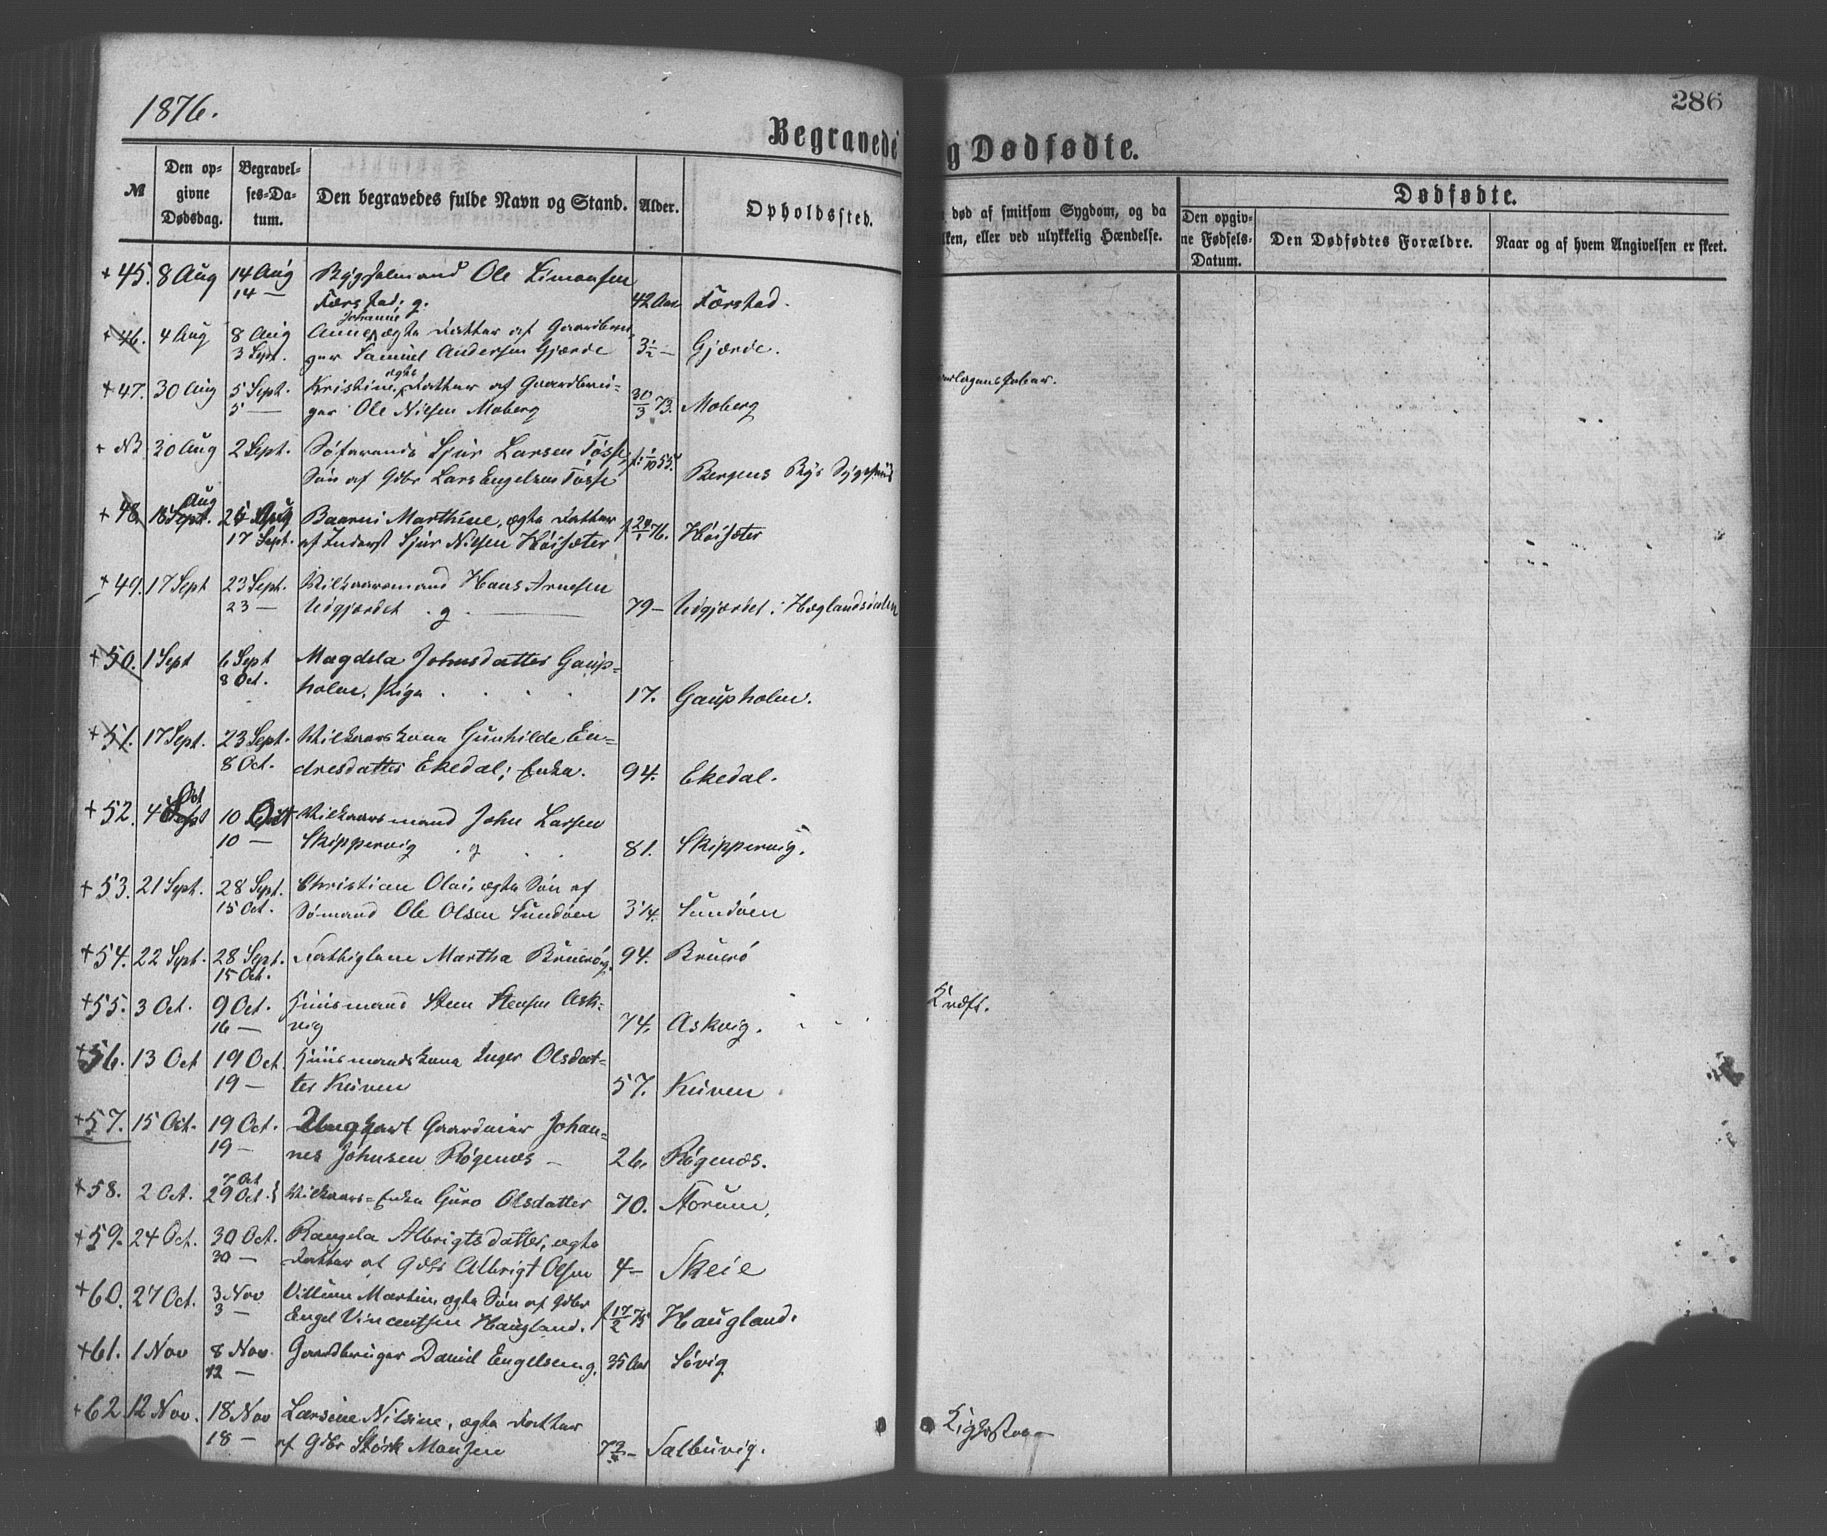 1876.
286
Begravede
g Dødfødte.
№
Den opgivne Dødsdag.
Begravelses-Datum.
Den begravedes fulde Navn og Stand.
Alder.
Opholdssted.
død af smitsom Sygdom, og da
lken, eller ved ulykkelig Hændelse.
Dødfødte.
Den opgivne Fødsels-Datum.
Den Dødfødtes Forældre.
Naar og af hvem Angivelsen er skeet.
+ 45. 8 Aug 14 Aug Ole Simonsen
14 — Førstad. g. 42 Aar Førstad.
Johanne
+ 46. 4 Aug 8 Aug Anne, ægte Datter af Gaardbru-
3 Sept. ger Samuel Andersen Gjærde 3½ — Gjærde.
ægte
+ 47. 30 Aug 5 Sept. Kristine, Datter af Gaardbru-
5 — ger Ole Nilsen Moberg 30/3 73. Moberg
+ NB 30 Aug 2 Sept. Søfarende Sjur Larsen Tøsse,
Søn af Gdbr Lars Engelsen Tøsse f: 1/10 55. Bergens Bys Sygehuus
Aug
+ 48. 18 Sept. 26 Aug Baarni Marthine, ægte Datter
17 Sept. af Inderst Sjur Nilsen Høisæter f 24/1 76. Høisæter
+ 49. 17 Sept 23 Sept. Vilkaarsmand Hans Arnesen
23 — Udgjærdet g. — 79 — Udgjærdet i Hæglandsdalen
+ 50. 1 Sept 6 Sept Magdela Johnsdatter Gaup-
8 Oct. holm, Pige 17. Gaupholm.
+ 51. 17 Sept. 23 Sept. Vilkaarskone Gunhilde En-
8 Oct. dresdatter Ekedal; Enke. 94. Ekedal.
Oct
+ 52. 4 Sept 10 Oct Vilkaarsmand John Larsen
10 — Skippervig g 81. Skippervig.
+ 53. 21 Sept. 28 Sept. Christian Olai, ægte Søn af
15 Oct. Sømand Ole Olsen Sundøen 3 1/4. Sundøen
+ 54. 22 Sept. 28 Sept. Fattiglem Martha Bruerøig. 94. Bruerö
15 Oct.
+ 55. 3 Oct. 9 Oct. Huusmand Steen Stensen Ask-
16 — vig 74. Askvig.
Kræft.
+ 56. 13 Oct 19 Oct. Huusmandskone Inger Olsdat-
19 — ter Kuven 57. Kuven
+ 57. 15 Oct. 19 Oct. Ungkarl Gaardeier Johan-
19 — nes Johnsen Røgenæs — 26. Røgenæs.
7 Oct
+ 58. 2 Oct. 29 Oct. Vilkaars-Enke Guro Olsdatter 70. Storum,
+ 59. 24 Oct. 30 Oct. Rangela Albrigtsdatter, ægte
30 — Datter af Gdbr Albrigt Olsen 4 — Skeie
+ 60. 27 Oct. 3 Nov Villum Martin, ægte Søn af Gdbr
3 — Engel Vincentsen Haugland. f 17/2 75 Haugland.
+ 61. 1 Nov 8 Nov. Gaardbruger Daniel Engelsen g. 35 Aar Søvig
12 —
+ 62. 12 Nov. 18 Nov Larsine Nilsine, ægte Datter
18 — af Gdbr Størk Monsen Salbuvig.